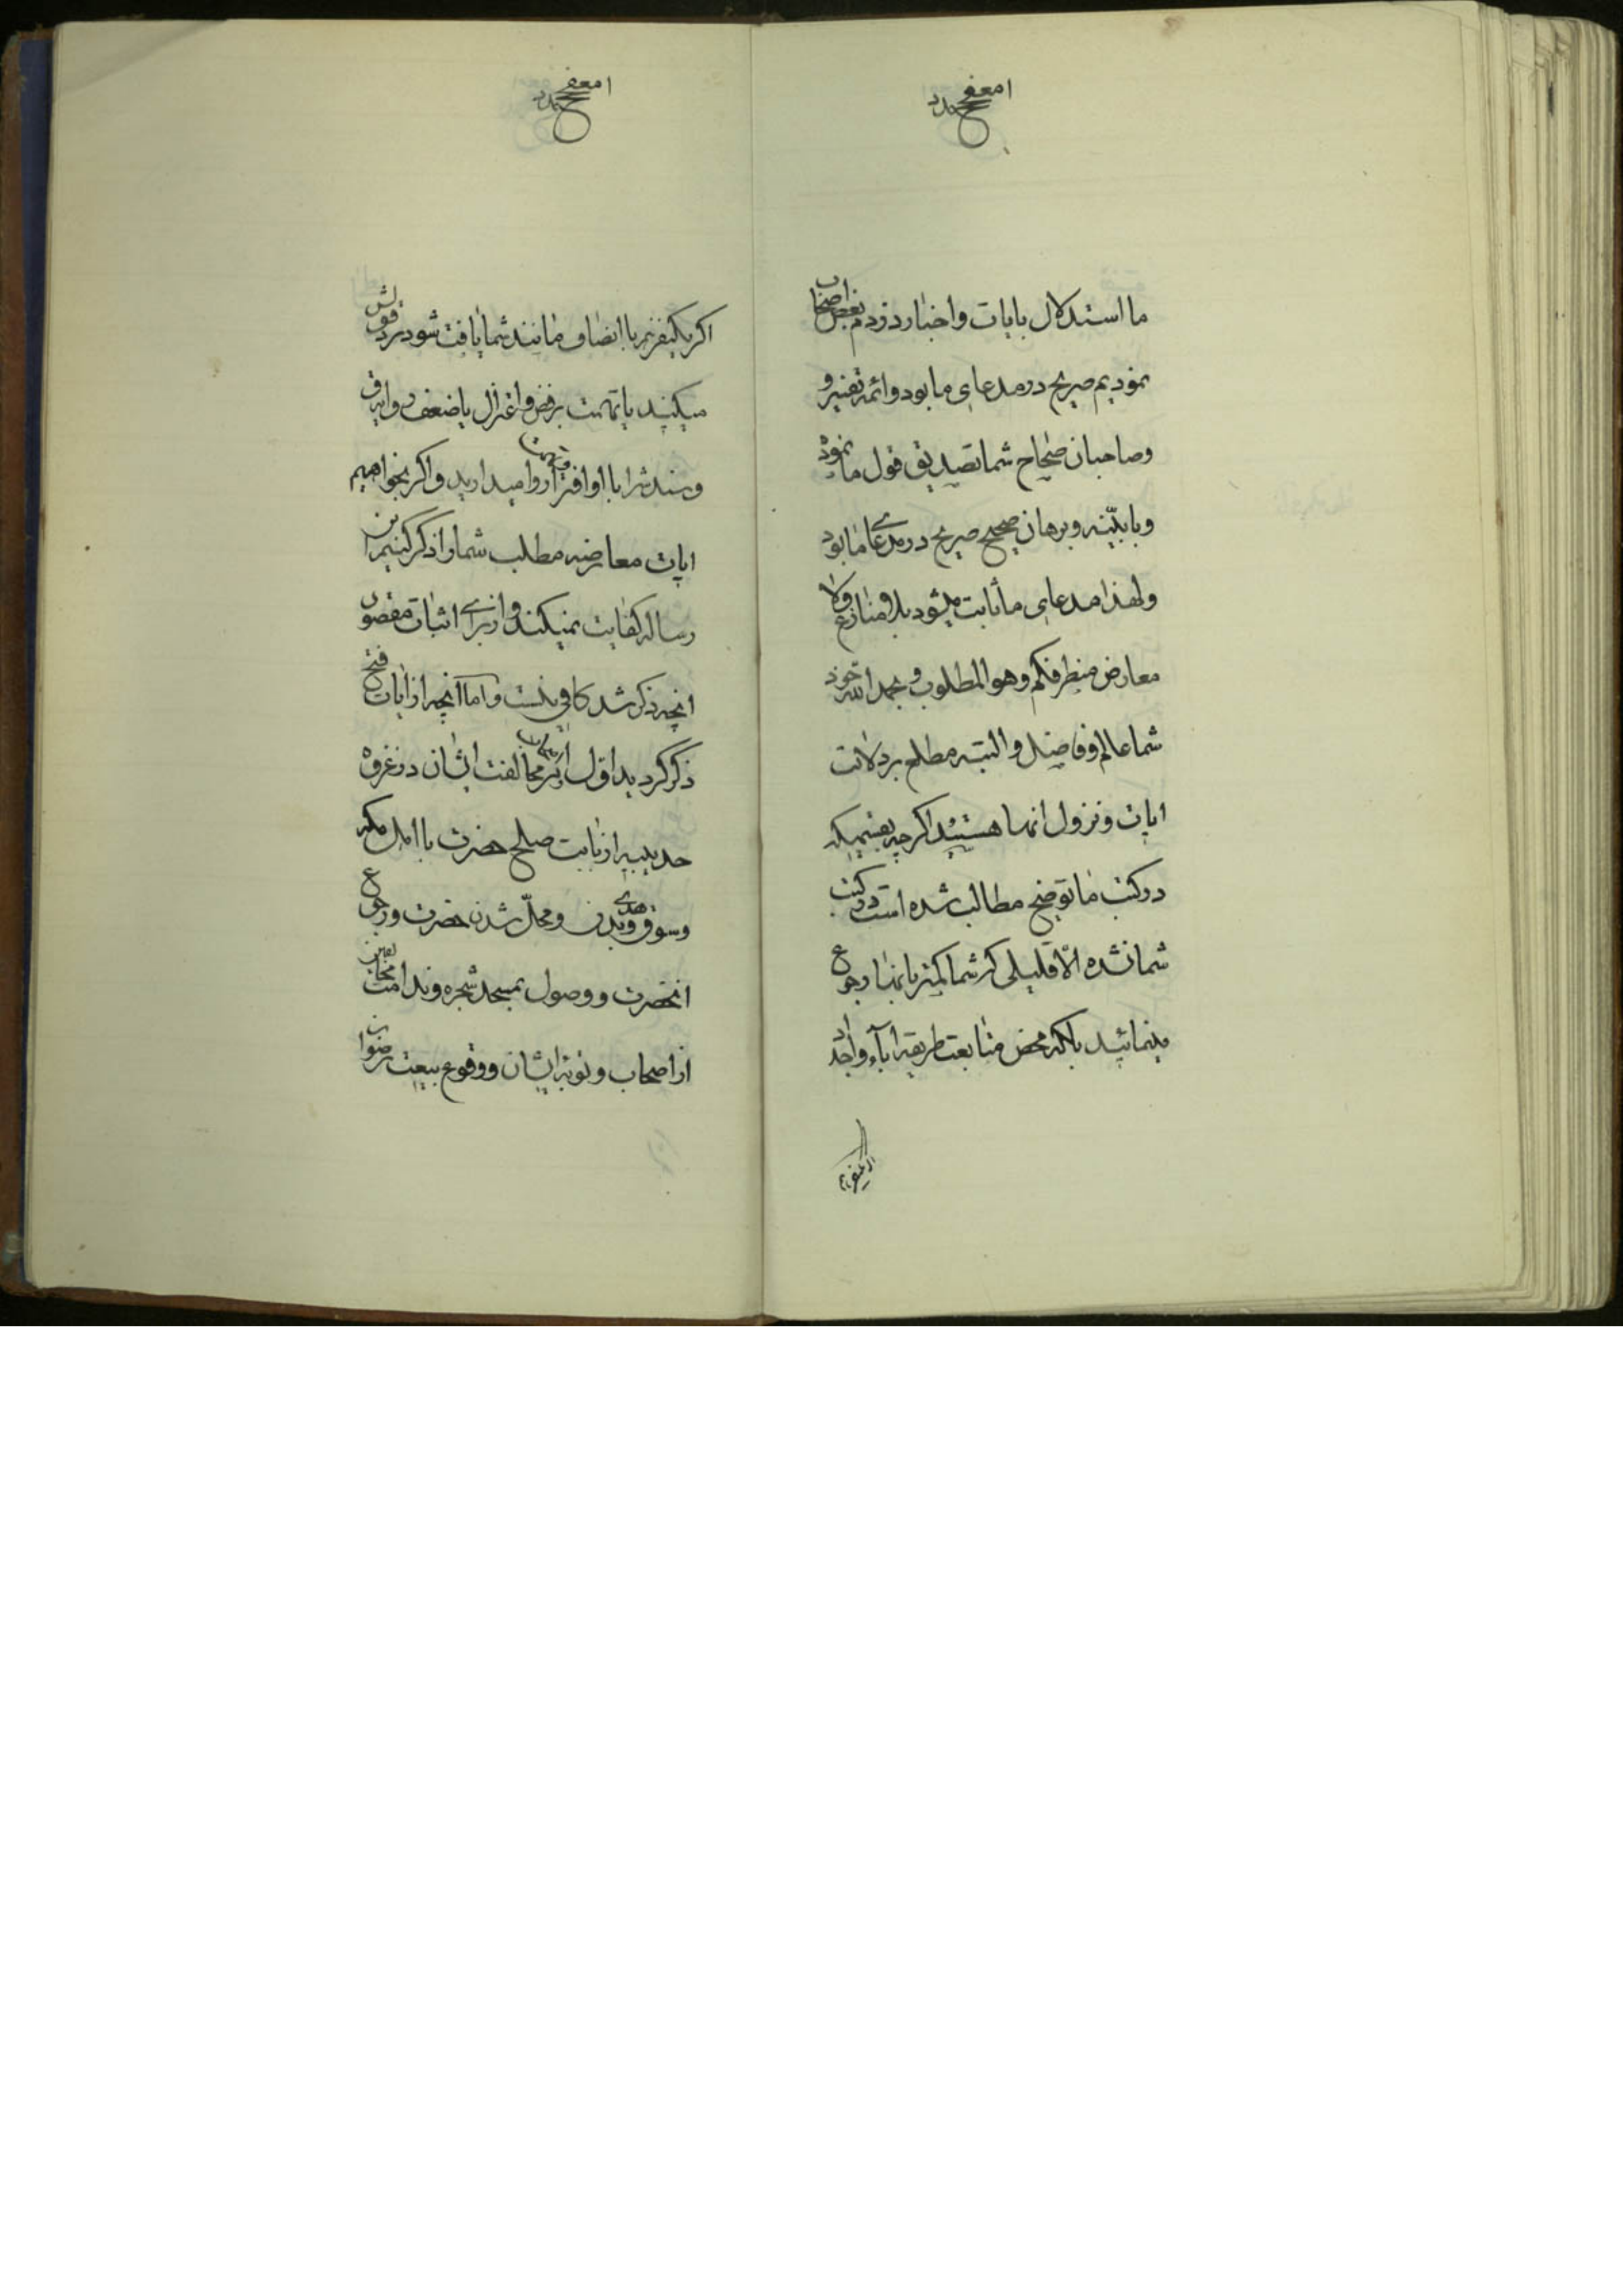 ما استدلال بایات و اخبار در ذم بعض اصحاب
نمودیم صریح در مدعای ما بود و ائمه تفسیر و
وصاحبان صحاح شما تصدیق قول ما نمودند
و با بیّنه و برهان صحیح صریح در مدعای ما بود
ولهذا مدعای ما ثابت میشود بلا منازع ولا
معارض من طرفکم وهو المطلوب و بحمد الله خود
شما عالم و فاضل والبته مطلع بر دلالت
ایات و نزول انها هستید اگرچه بقسمیکه
در کتب ما توضیح مطالب شده است در کتب
شما نشده الا قلیلی که شما کمتر بانها رجوع
مینمائید بلکه محض متابعت طریقه اباء و اجداد
اگر یکنفر هم با انصاف مانند شما یافت شود رد قولش
میکنید یا تهمت برفض و اعتزال یا ضعف راویرا
و سند را با او افترا روا میدارید و اگر بخواهیم
ایات معارضه مطلب شما را ذکر کنیم این
رساله کفایت نمیکند و از برای اثبات مقصود
انچه ذکر شد کافی است و اما انچه از ایات فتح
ذکر کردید اول مخالفت ایشان در غزوه
حدیبیه از بابت صلح حضرت با اهل مکه
وسوق هدی و بدن و محل شدن حضرت و رجوع
انحضرت و وصول بمسجد شجره و ندامت مخالفین
از اصحاب و توبه ایشان و وقوع بیعت رضوان